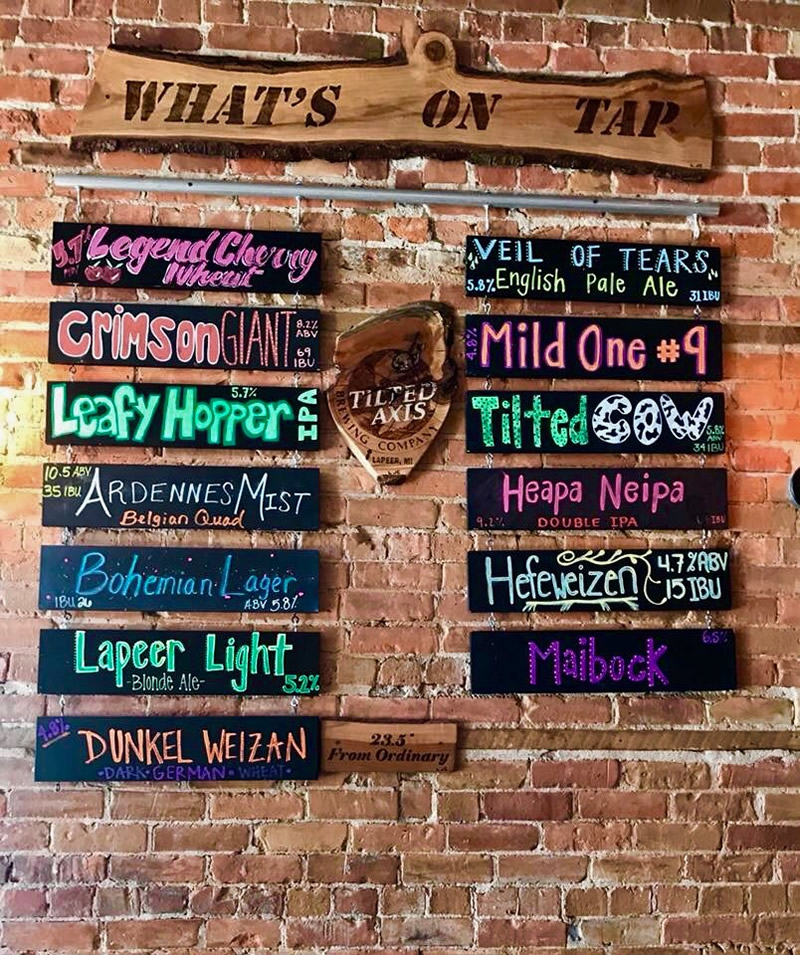 WHAT'S ON TAP
5.7%
Legend Cherry
Wheat
Crimson GIANT
8.2%
ABV
69
IBU
5.7%
Leafy Hopper IPA
10.5 ABV
35 IBU
ARDENNES MIST
Belgian Quad
Bohemian Lager
IBU 26
ABV 5.8%
Lapeer Light
-Blonde Ale-
5.2%
4.8%
DUNKEL WEIZAN
•DARK•GERMAN•WHEAT•
TILTED
AXIS
BREWING COMPANY
LAPEER, MI
23.5°
From Ordinary
VEIL OF TEARS
5.8% English Pale Ale 31 IBU
4.8%
Mild One #9
Tilted COW
5.8%
ABV
34 IBU
Heapa Neipa
9.2% DOUBLE IPA IBU
Hefeweizen
4.7% ABV
15 IBU
6.5%
Maibock